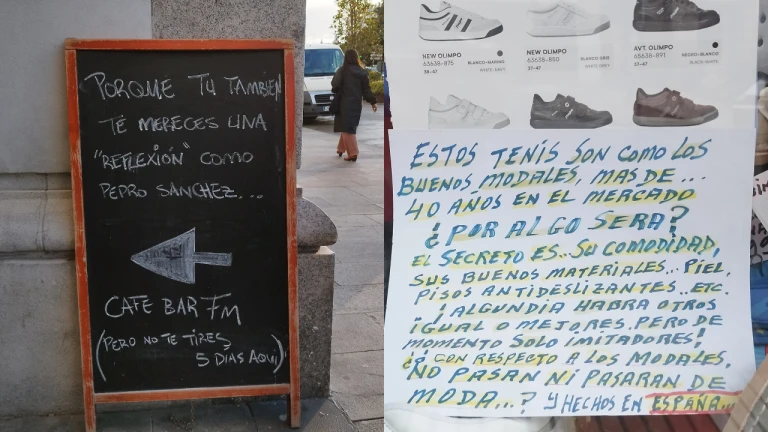 PORQUE TU TAMBIEN
TE MERECES UNA
"REFLEXIÓN" COMO
PEDRO SANCHEZ...
CAFE BAR FM
(PERO NO TE TIRES
5 DIAS AQUI)
NEW OLIMPO
63638-875
BLANCO-MARINO
38-47
NEW OLIMPO
63638-850
BLANCO-GRIS
WHITE-GREY
37-47
AVT. OLIMPO
NEGRO-BLANCO
BLACK-WHITE
37-47
ESTOS TENIS SON COMO LOS
BUENOS MODALES, MAS DE...
40 AÑOS EN EL MERCADO
¿POR ALGO SERA?
EL SECRETO ES.. SU COMODIDAD,
SUS BUENOS MATERIALES.. PIEL,
PISOS ANTIDESLIZANTES.. ETC.
¡ALGUN DIA HABRA OTROS
IGUAL O MEJORES. PERO DE
MOMENTO SOLO IMITADORES!
¿¡ CON RESPECTO A LOS MODALES,
NO PASAN NI PASARAN DE
MODA...? Y HECHOS EN ESPAÑA...